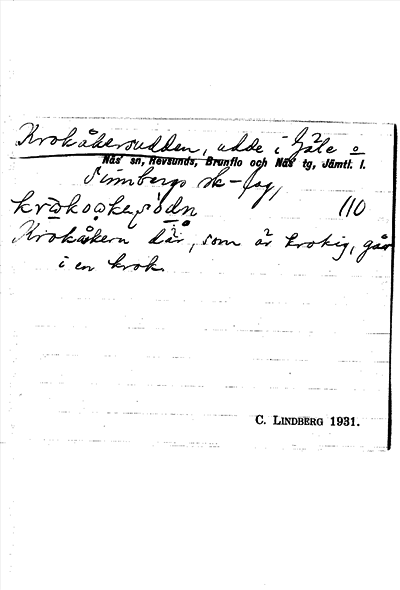 Krokåkersudden, udde i Gåle o
Näs sn, Revsunds, Brunflo och Näs tg, Jämtl. l.
Sünnbergs sk-lag,
110
Krokåkern där, som är krokig, går
i en krok.
C. LINDBERG 1931.